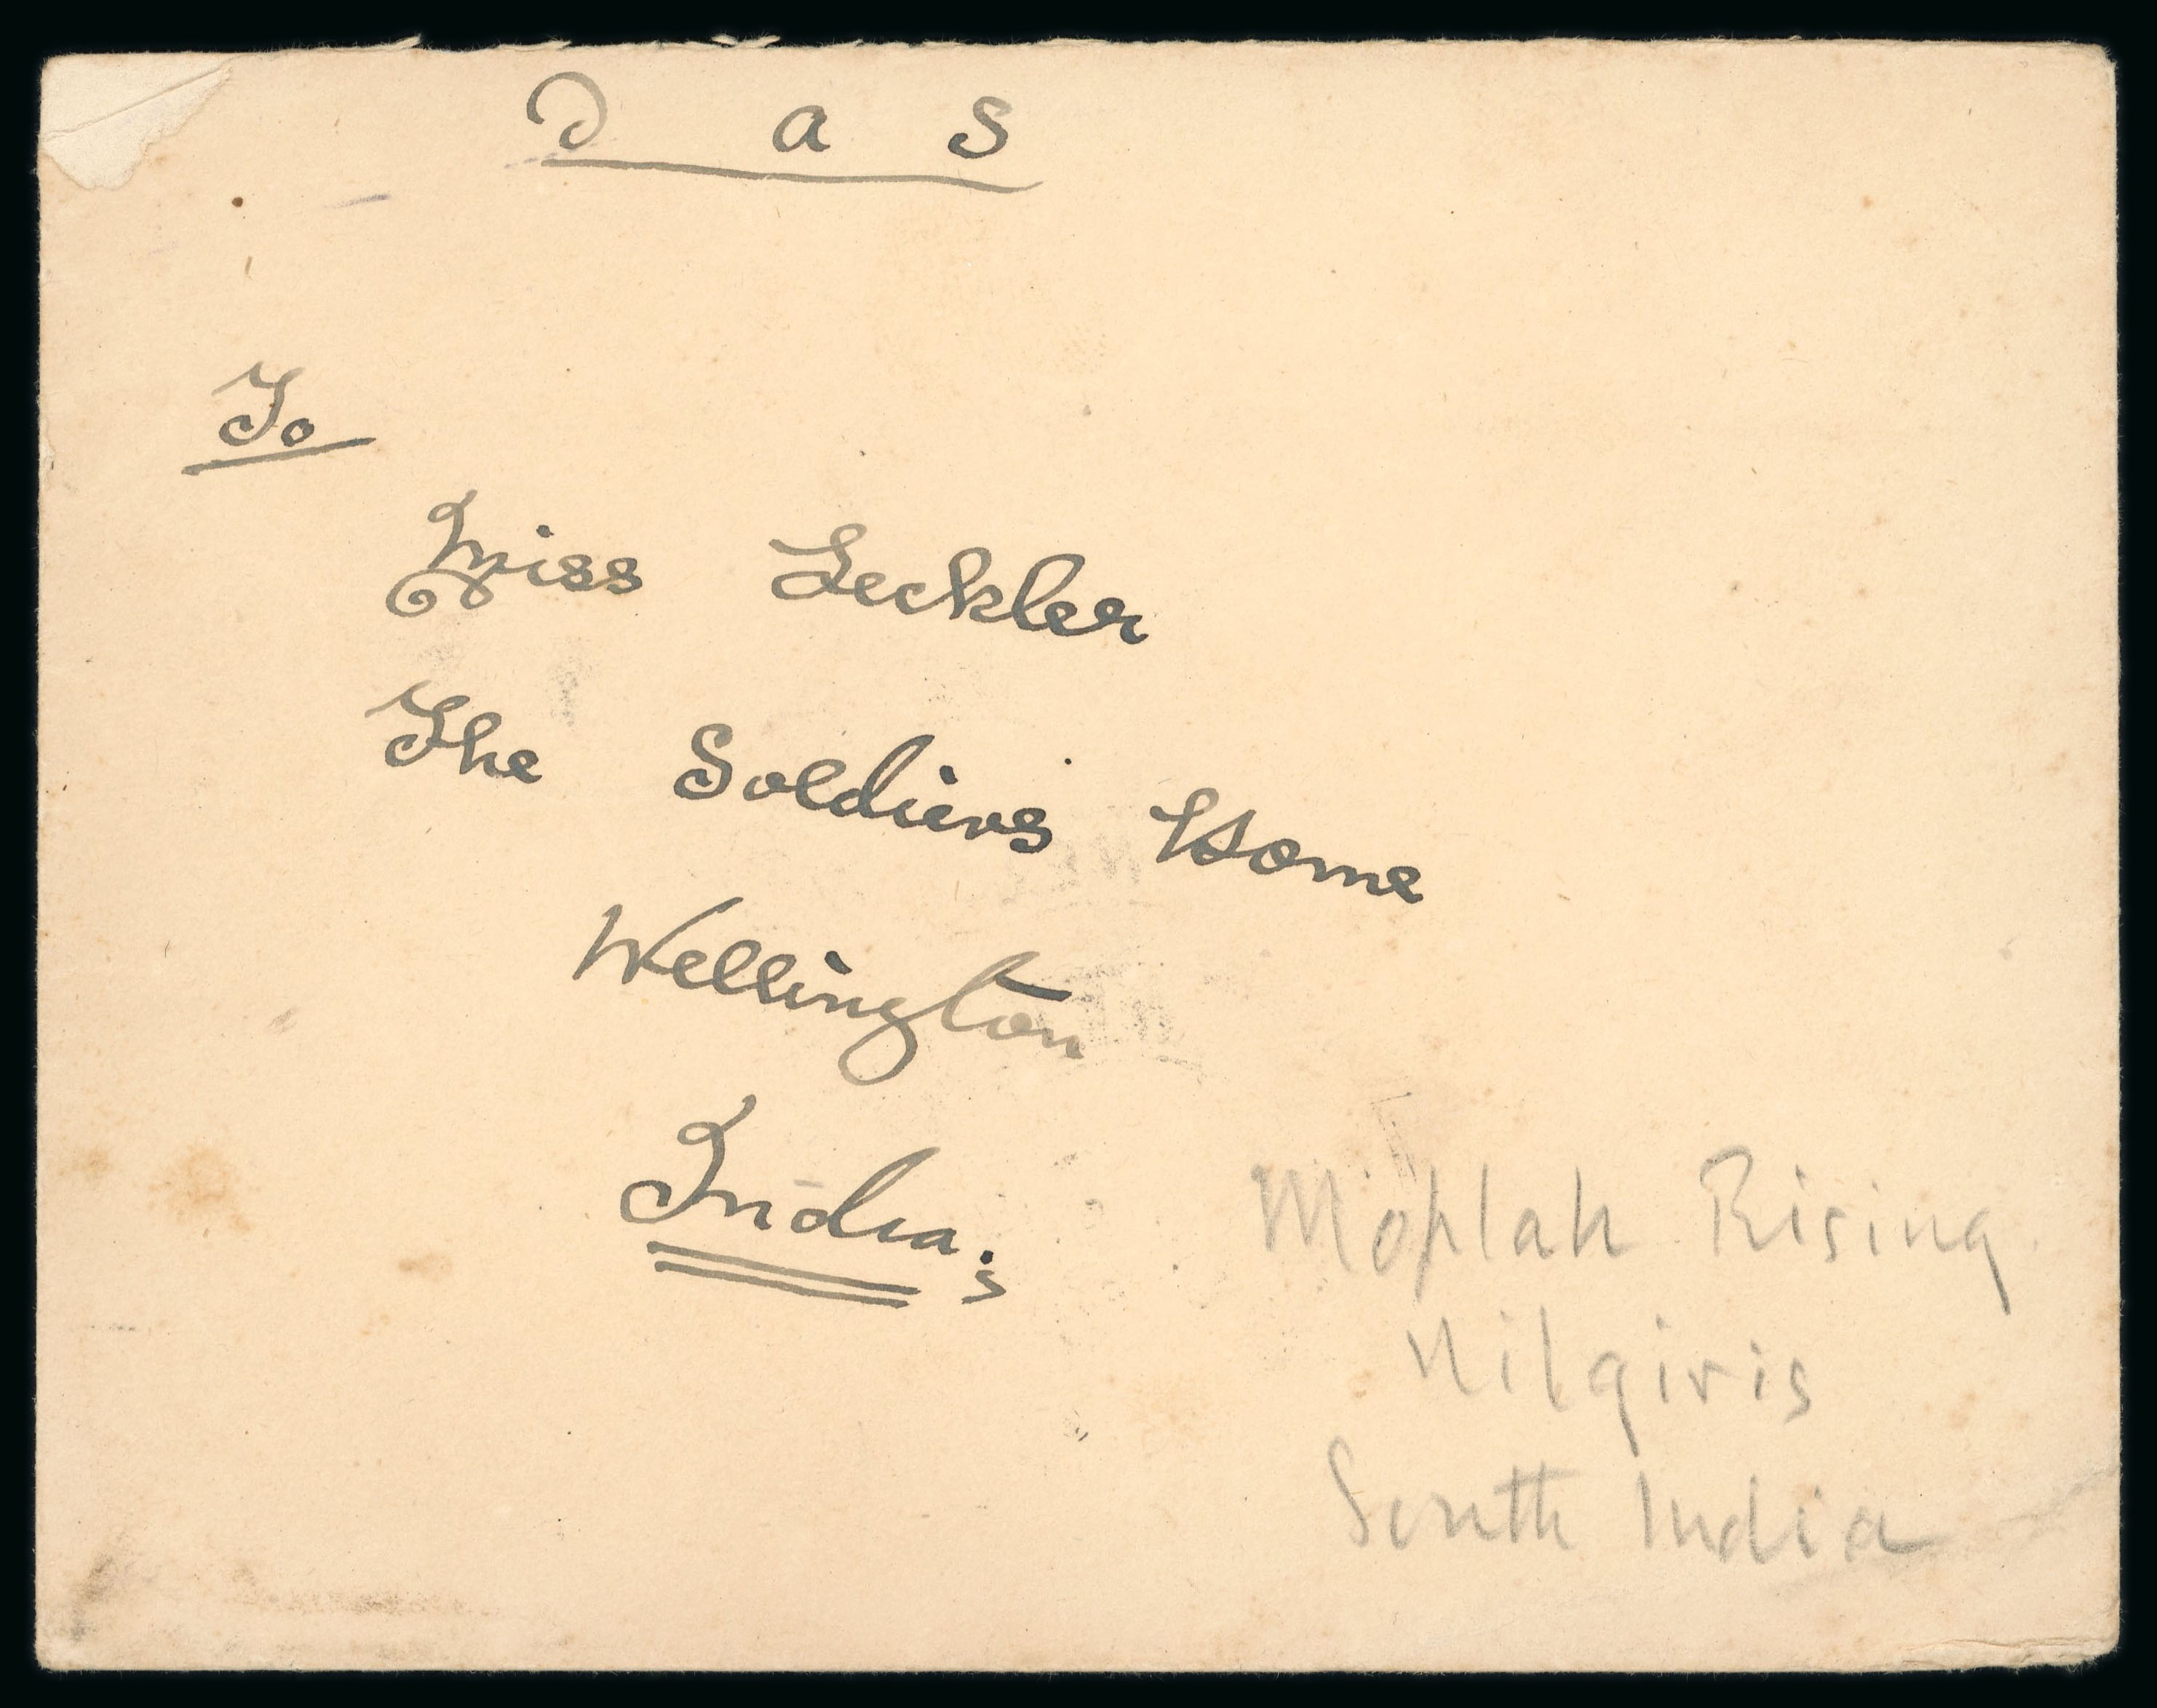 O a S
To
Miss Leckler
The Soldiers Home
Wellington
India.s
Moplah Rising
Nilgiris
South India